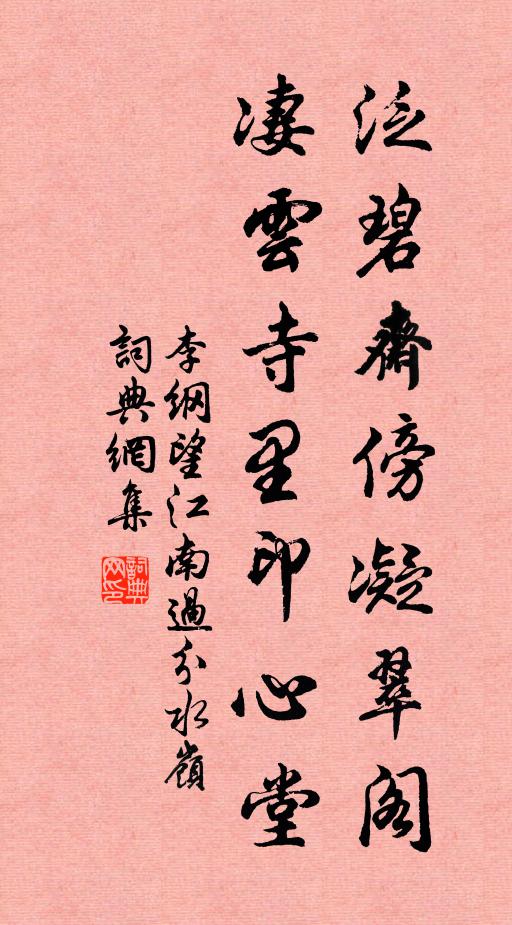 泛碧齋傍凝翠阁
凄雲寺里印心堂
李綱望江南過分水嶺
詞典網集
詞典网印